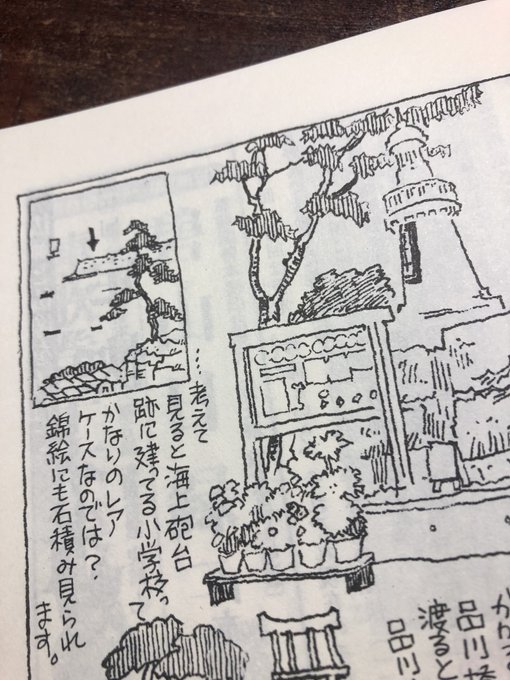 …考えて
見ると海上砲台
跡に建ってる小学校って
かなりのレア
ケースなのでは?
錦絵にも石積み見られ
ます。
かかる
品川橋
渡ると
品川